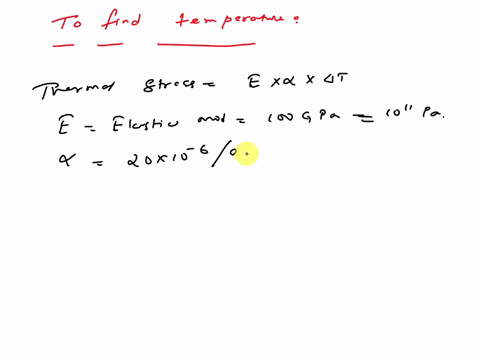 To find temperature:
Thermal stress = E × α × ΔT
E = Elastic mod = 100 G Pa = 10¹¹ Pa.
α = 20×10⁻⁶ /0